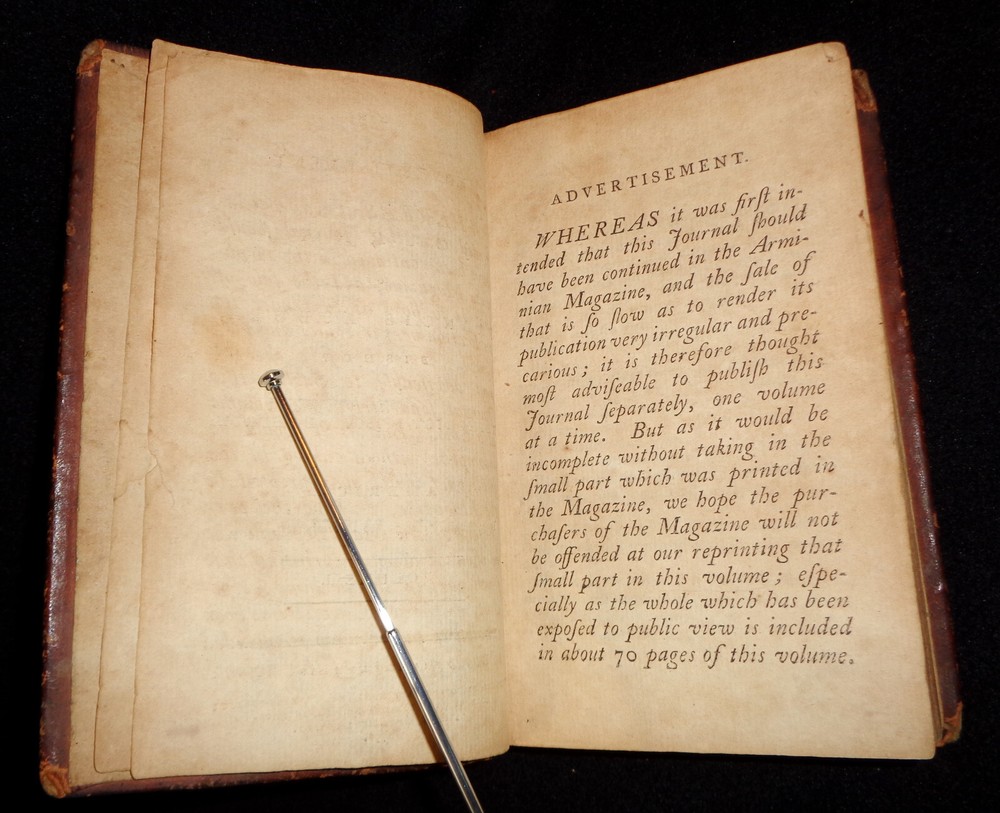 ADVERTISEMENT.
WHEREAS it was firſt in-
tended that this Journal ſhould
have been continued in the Armi-
nian Magazine, and the ſale of
that is ſo ſlow as to render its
publication very irregular and pre-
carious; it is therefore thought
moſt adviſeable to publiſh this
Journal ſeparately, one volume
at a time. But as it would be
incomplete without taking in the
ſmall part which was printed in
the Magazine, we hope the pur-
chaſers of the Magazine will not
be offended at our reprinting that
ſmall part in this volume; eſpe-
cially as the whole which has been
expoſed to public view is included
in about 70 pages of this volume.